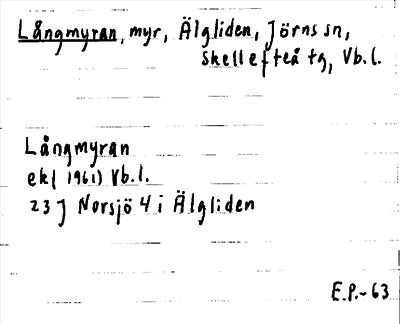 Långmyran, myr, Älgliden, Jörns sn,
Skellefteå tg, Vb.l.
Långmyran
ek( 1961) Vb.l.
23 J Norsjö 4 i Älgliden
E.P.-63